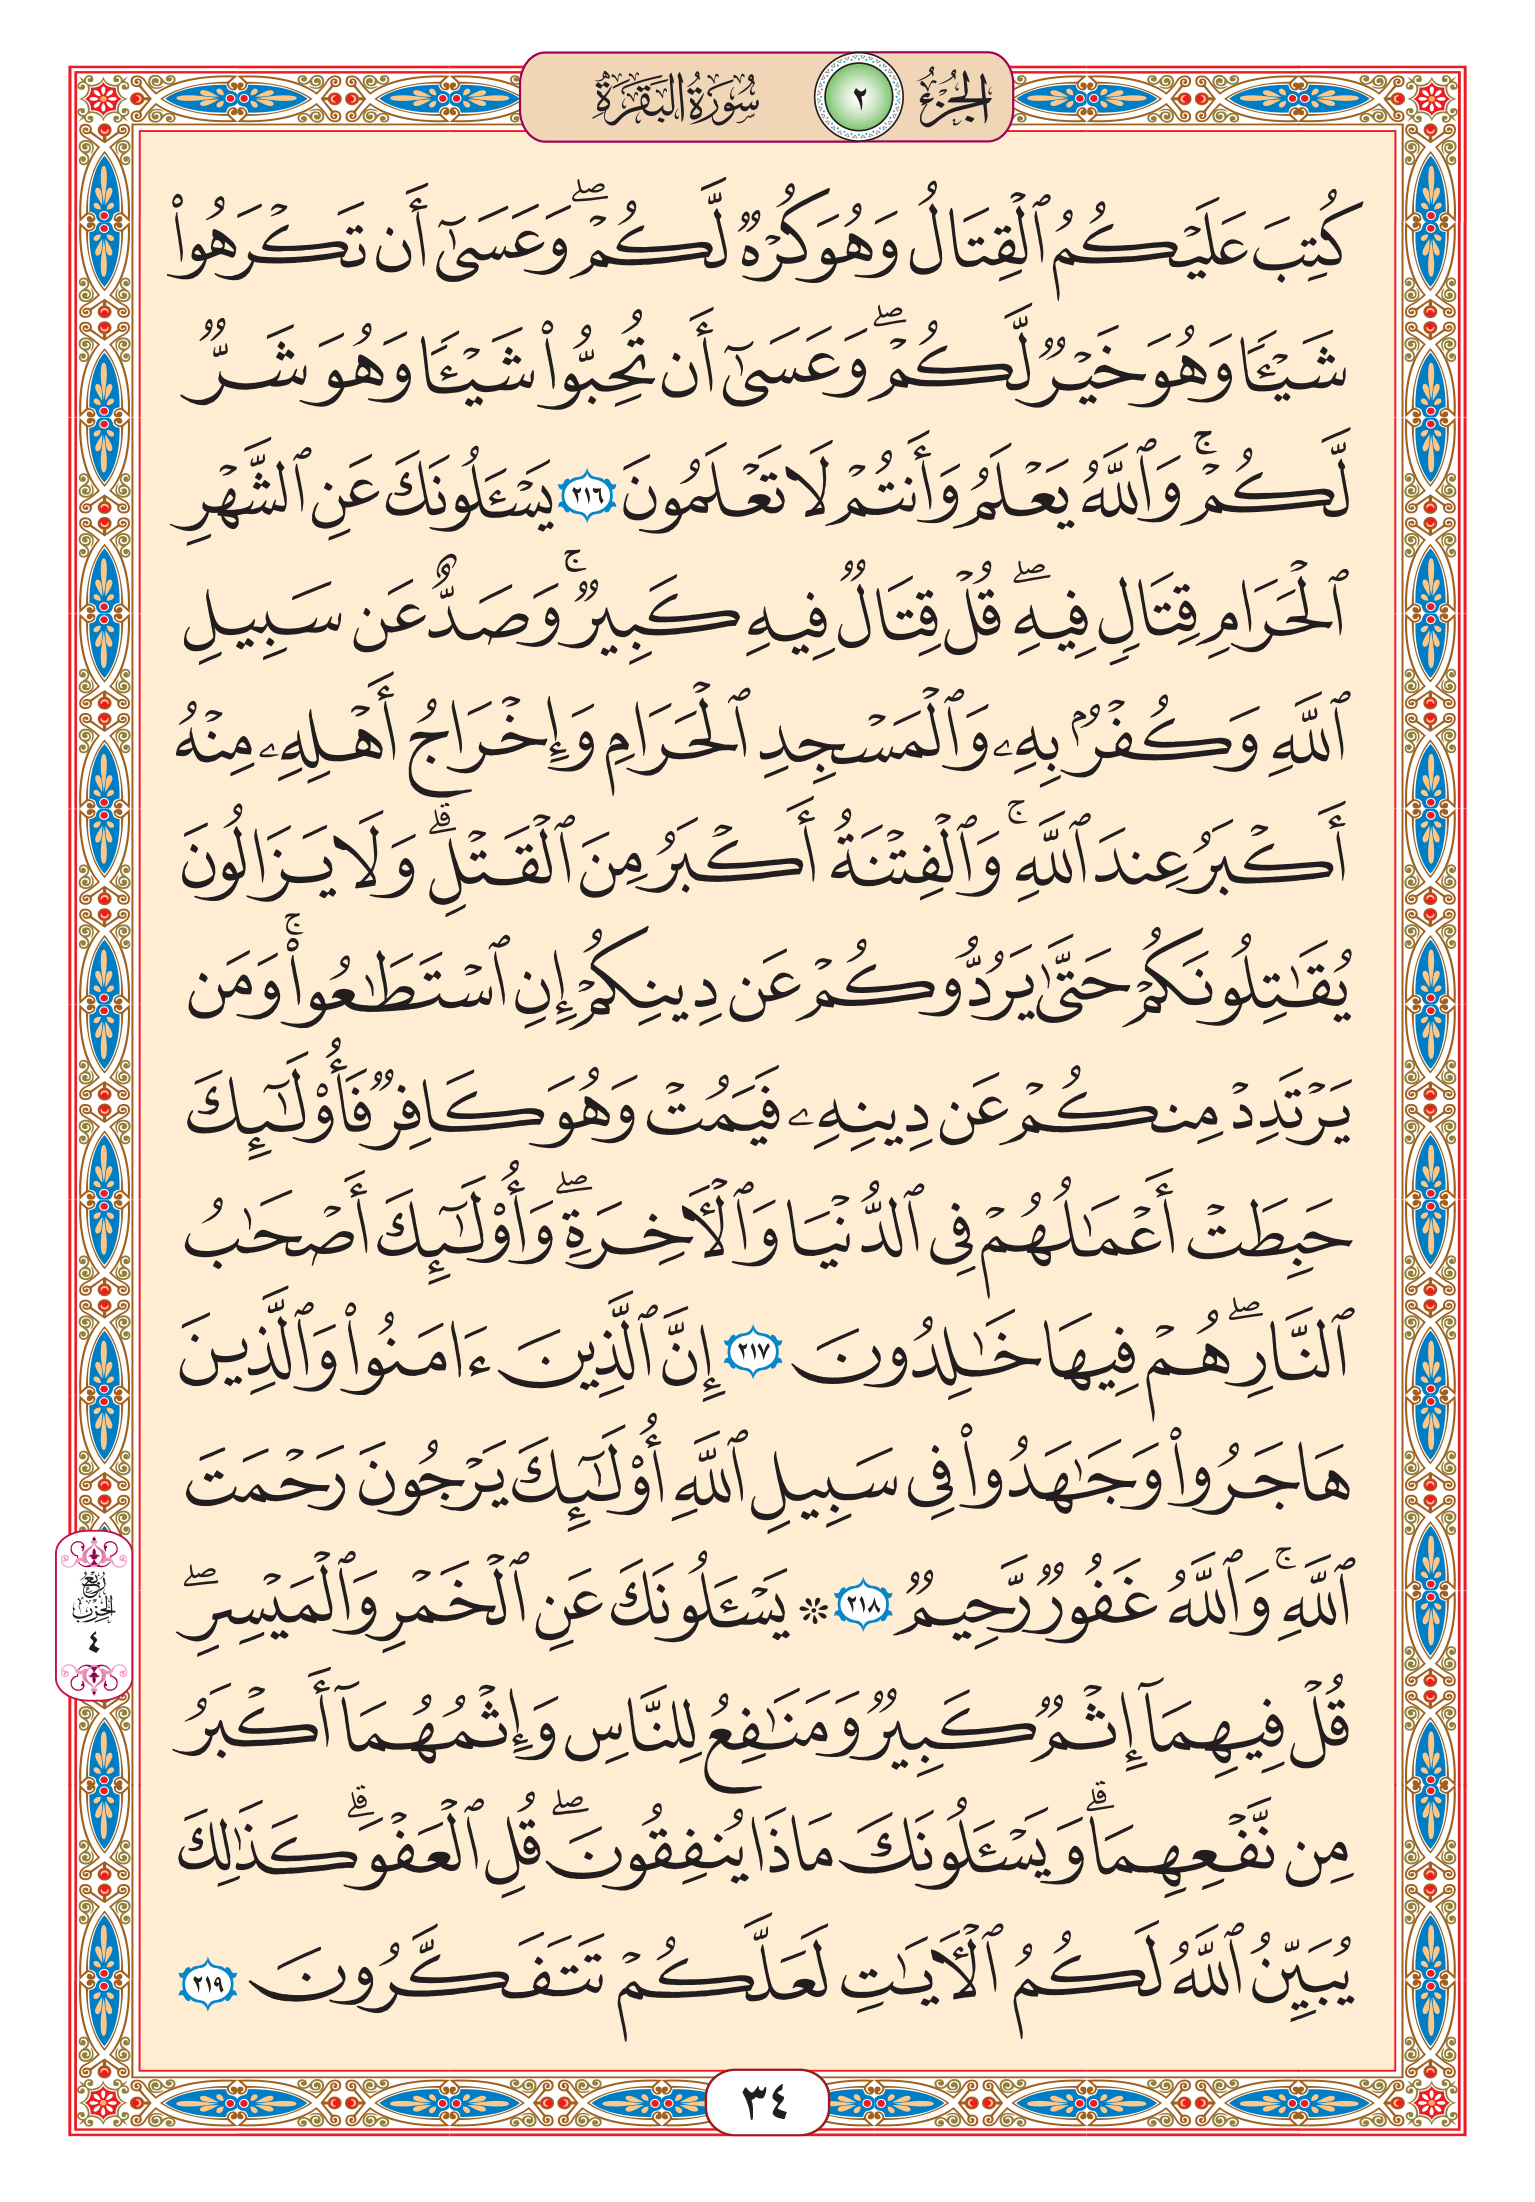 الجزء ٢ سورة البقرة
كُتِبَ عَلَيۡكُمُ ٱلۡقِتَالُ وَهُوَ كُرۡهٞ لَّكُمۡۖ وَعَسَىٰٓ أَن تَكۡرَهُواْ
شَيۡـٔٗا وَهُوَ خَيۡرٞ لَّكُمۡۖ وَعَسَىٰٓ أَن تُحِبُّواْ شَيۡـٔٗا وَهُوَ شَرّٞ
لَّكُمۡۚ وَٱللَّهُ يَعۡلَمُ وَأَنتُمۡ لَا تَعۡلَمُونَ ٢١٦ يَسۡـَٔلُونَكَ عَنِ ٱلشَّهۡرِ
ٱلۡحَرَامِ قِتَالٖ فِيهِۖ قُلۡ قِتَالٞ فِيهِ كَبِيرٞۚ وَصَدٌّ عَن سَبِيلِ
ٱللَّهِ وَكُفۡرُۢ بِهِۦ وَٱلۡمَسۡجِدِ ٱلۡحَرَامِ وَإِخۡرَاجُ أَهۡلِهِۦ مِنۡهُ
أَكۡبَرُ عِندَ ٱللَّهِۚ وَٱلۡفِتۡنَةُ أَكۡبَرُ مِنَ ٱلۡقَتۡلِۗ وَلَا يَزَالُونَ
يُقَٰتِلُونَكُمۡ حَتَّىٰ يَرُدُّوكُمۡ عَن دِينِكُمۡ إِنِ ٱسۡتَطَٰعُواْۚ وَمَن
يَرۡتَدِدۡ مِنكُمۡ عَن دِينِهِۦ فَيَمُتۡ وَهُوَ كَافِرٞ فَأُوْلَٰٓئِكَ
حَبِطَتۡ أَعۡمَٰلُهُمۡ فِي ٱلدُّنۡيَا وَٱلۡأٓخِرَةِۖ وَأُوْلَٰٓئِكَ أَصۡحَٰبُ
ٱلنَّارِۖ هُمۡ فِيهَا خَٰلِدُونَ ٢١٧ إِنَّ ٱلَّذِينَ ءَامَنُواْ وَٱلَّذِينَ
هَاجَرُواْ وَجَٰهَدُواْ فِي سَبِيلِ ٱللَّهِ أُوْلَٰٓئِكَ يَرۡجُونَ رَحۡمَتَ
ٱللَّهِۚ وَٱللَّهُ غَفُورٞ رَّحِيمٞ ٢١٨ ۞ يَسۡـَٔلُونَكَ عَنِ ٱلۡخَمۡرِ وَٱلۡمَيۡسِرِۖ
ربع الحزب ٤
قُلۡ فِيهِمَآ إِثۡمٞ كَبِيرٞ وَمَنَٰفِعُ لِلنَّاسِ وَإِثۡمُهُمَآ أَكۡبَرُ
مِن نَّفۡعِهِمَاۗ وَيَسۡـَٔلُونَكَ مَاذَا يُنفِقُونَۖ قُلِ ٱلۡعَفۡوَۗ كَذَٰلِكَ
يُبَيِّنُ ٱللَّهُ لَكُمُ ٱلۡأٓيَٰتِ لَعَلَّكُمۡ تَتَفَكَّرُونَ ٢١٩
٣٤